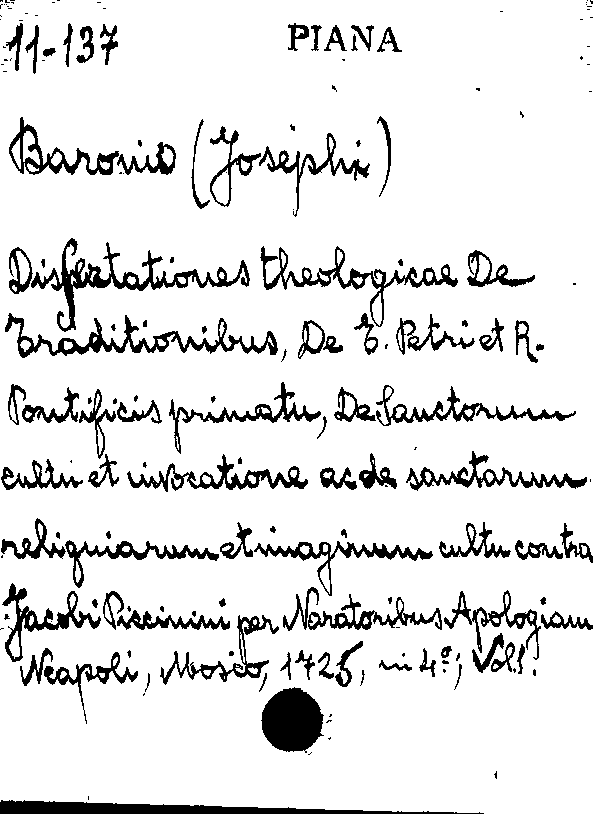 11-137 PIANA
Baronio (Josephi)
Dissertationes theologicae De
Traditionibus, De E. Petri et R.
Pontificis primatu, De Sanctorum
cultu et invocatione ac de sanctarum
reliquiarum et imaginum cultu contra
Jacobi Piccinini per Naratoribus Apologiam
Neapoli, Mosco, 1725, in 4º; Vol. 1.